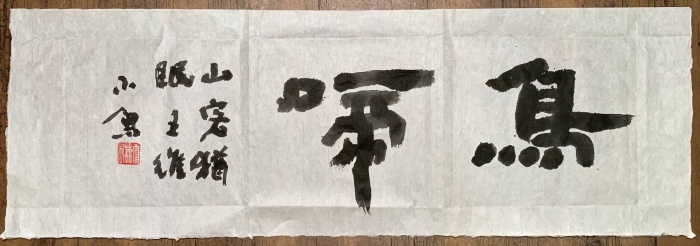 鳥啼
山客猶
眠王維
小魚